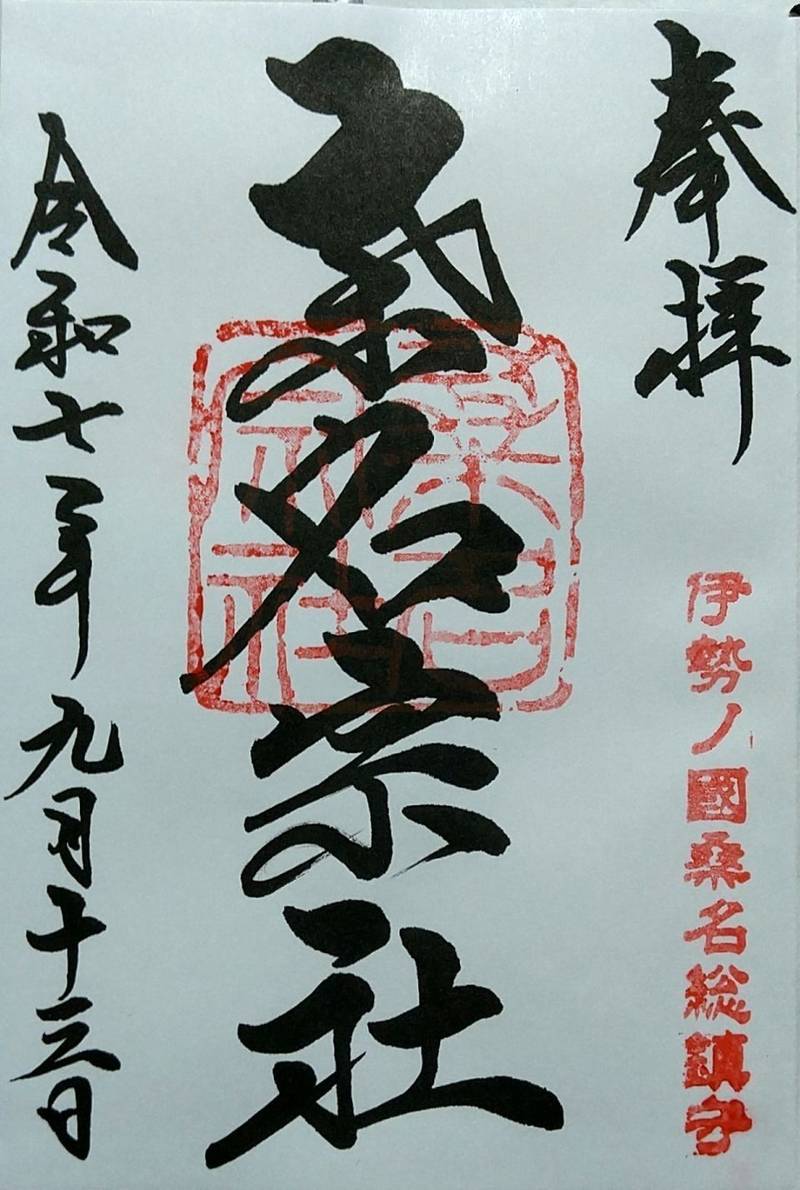 奉拝
伊勢ノ國桑名総鎮守
桑名宗社
桑名
宗社
令和七年九月十三日